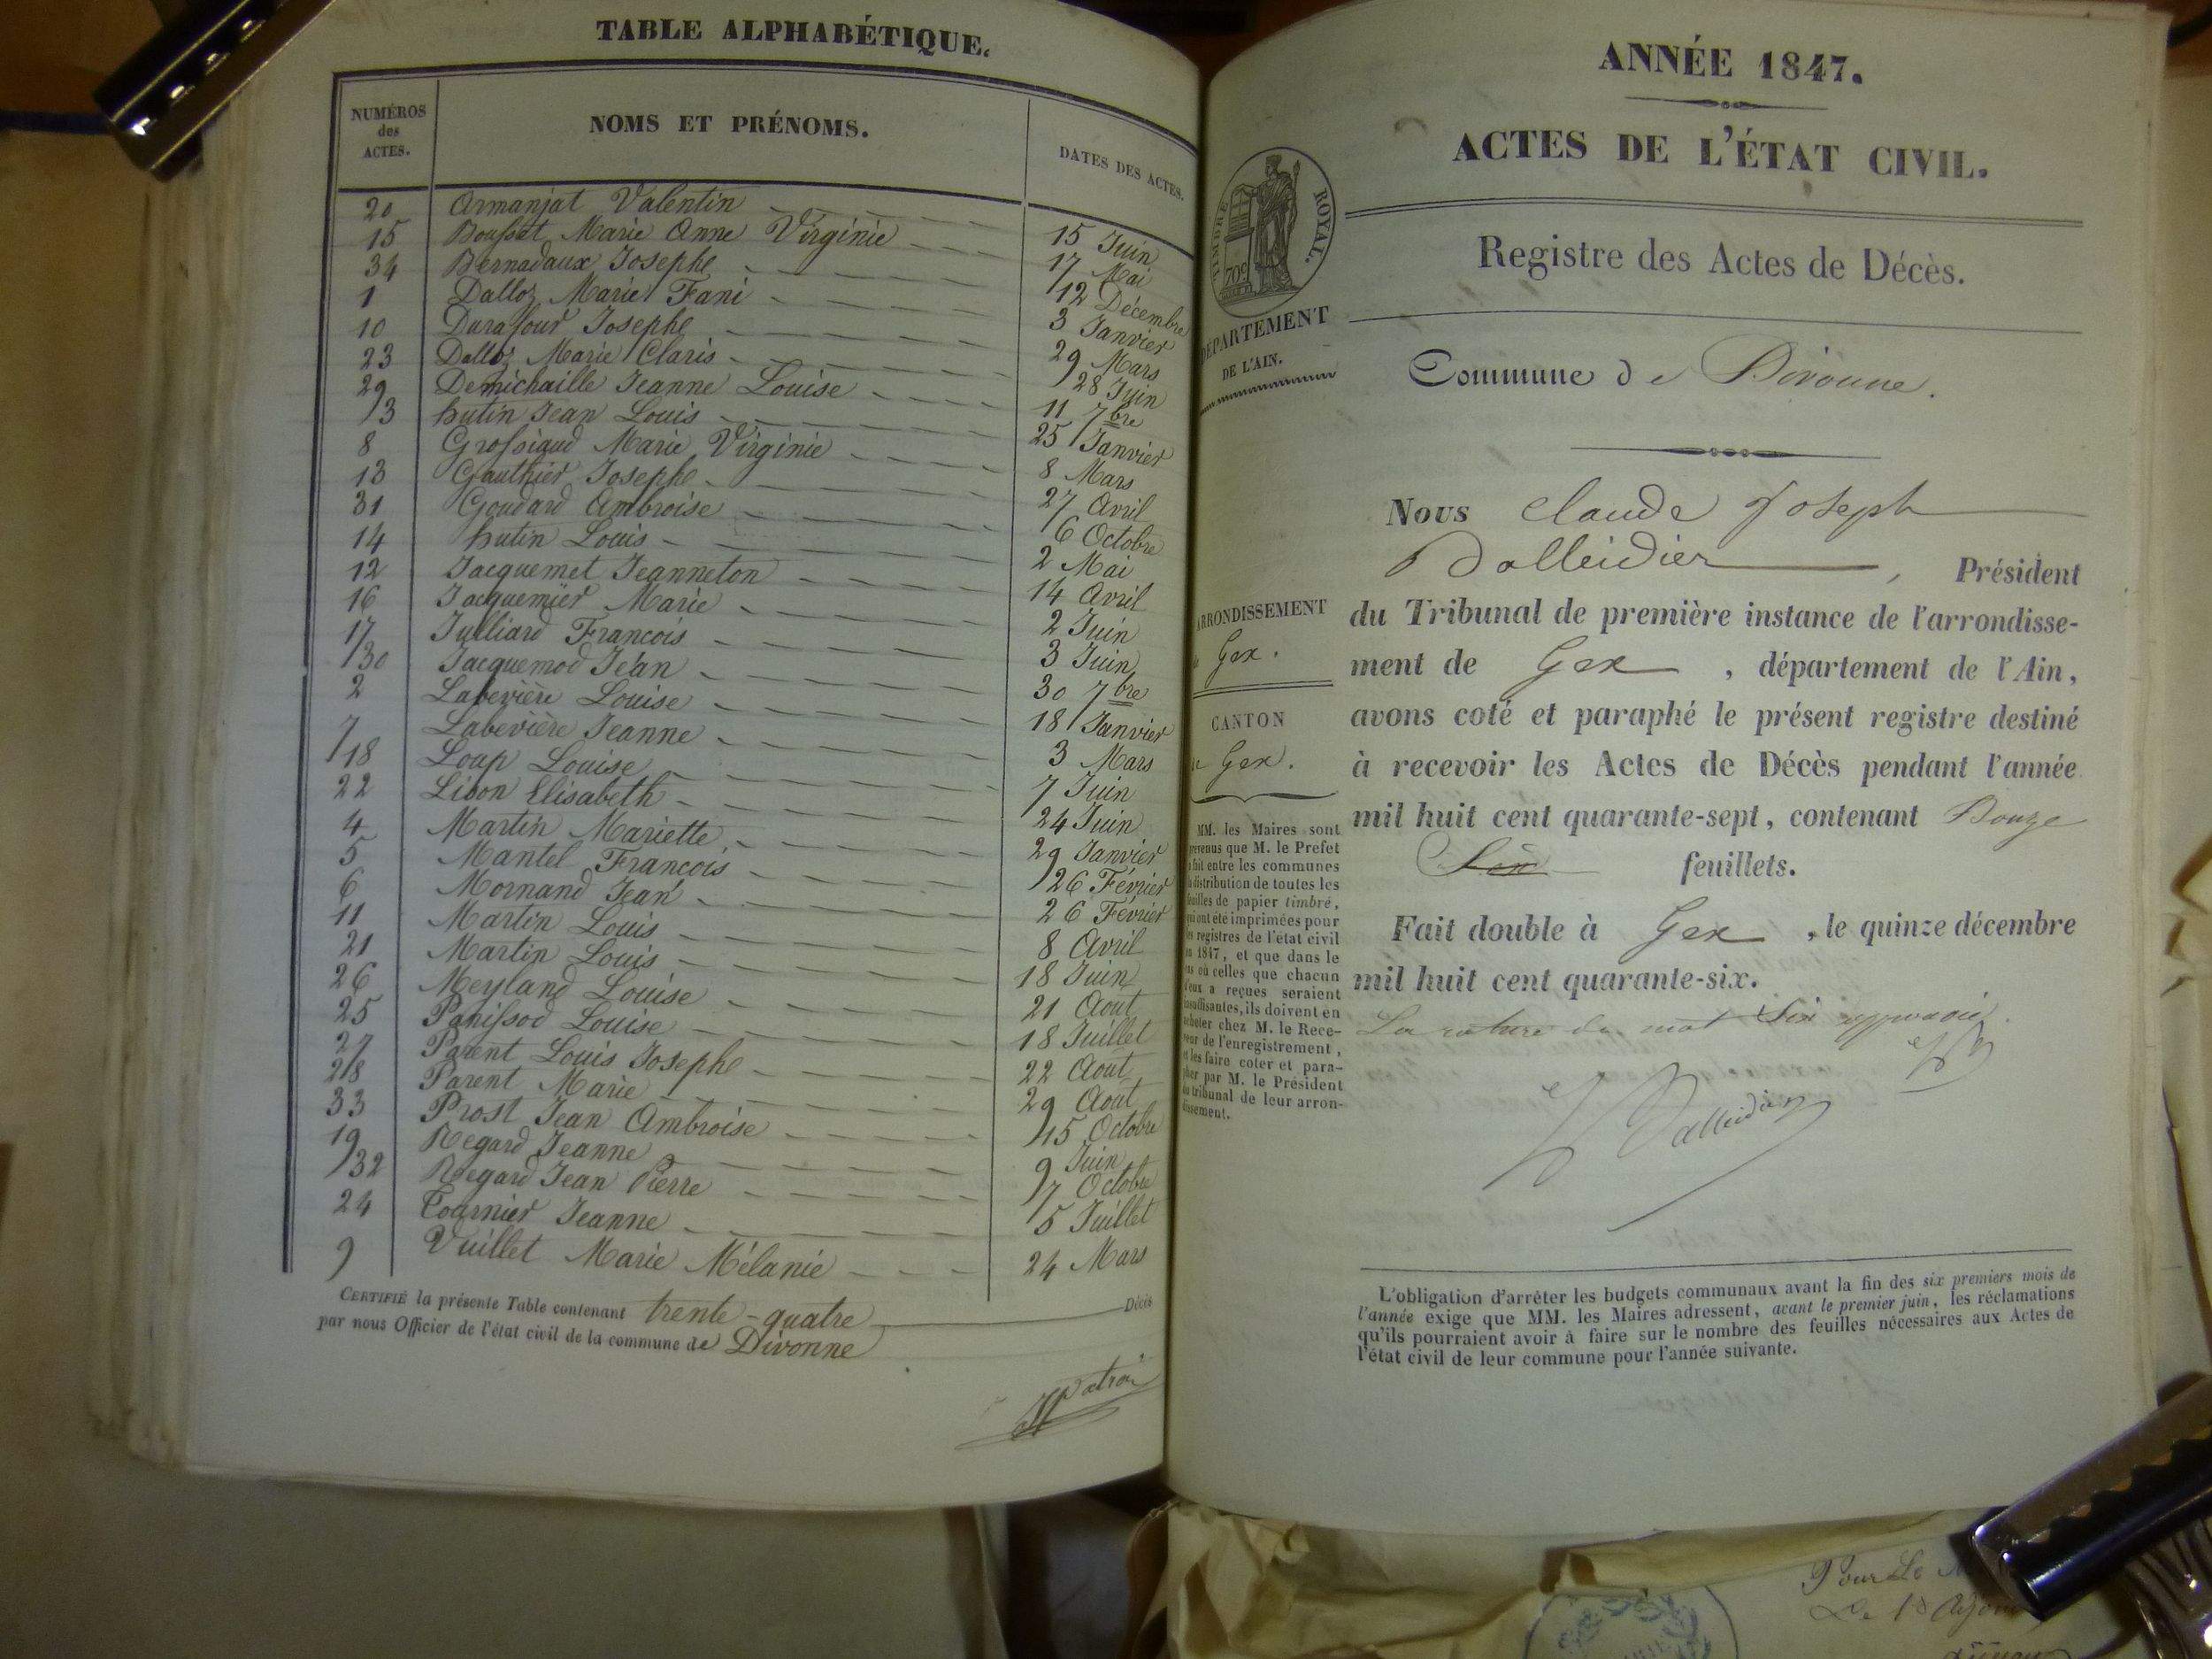 TABLE ALPHABÉTIQUE.
NUMÉROS des ACTES. NOMS ET PRÉNOMS. DATES DES ACTES.
20 Armanjat Valentin 15 Juin
15 Boussat Marie Anne Virginie 17 Mai
34 Bernadaux Josephe 12 Décembre
1 Dalloz Marie Fani 3 Janvier
10 Durafour Josephe 29 Mars
23 Dalloz Marie Claris 28 Juin
29 Demichaille Jeanne Louise 11 7bre
3 hutin Jean Louis 25 Janvier
8 Grossiaud Marie Virginie 8 Mars
13 Gauthier Josephe 27 Avril
31 Goudard Ambroise 6 Octobre
14 hutin Louis 2 Mai
12 Jacquemet Jeanneton 14 Avril
16 Jacquemier Marie 2 Juin
17 Julliard François 3 Juin
30 Jacquemod Jean 30 7bre
2 Labevière Louise 18 Janvier
7 Labevière Jeanne 3 Mars
18 Loup Louise 7 Juin
22 Lison Elisabeth 24 Juin
4 Martin Mariette 29 Janvier
5 Mantel François 26 Février
6 Mornand Jean 26 Février
11 Martin Louis 8 Avril
21 Martin Louis 18 Juin
26 Meyland Louise 21 Aout
25 Panissod Louise 18 Juillet
27 Parent Louis Josephe 22 Aout
28 Parent Marie 29 Aout
33 Prost Jean Ambroise 15 Octobre
19 Regard Jeanne 9 Juin
32 Regard Jean Pierre 7 Octobre
24 Tournier Jeanne 5 Juillet
9 Vuillet Marie Mélanie 24 Mars
CERTIFIÉ la présente Table contenant trente-quatre Décès
par nous Officier de l'état civil de la commune de Divonne
ANNÉE 1847.
ACTES DE L'ÉTAT CIVIL.
TIMBRE ROYAL.
70c
DÉPARTEMENT
DE L'AIN.
Registre des Actes de Décès.
Commune de Divonne.
Nous Claude Joseph
Dalleidier, Président
du Tribunal de première instance de l'arrondisse-
ment de Gex, département de l'Ain,
avons coté et paraphé le présent registre destiné
à recevoir les Actes de Décès pendant l'année
mil huit cent quarante-sept, contenant Douze
Six feuillets.
Fait double à Gex, le quinze décembre
mil huit cent quarante-six.
La rature du mot Six approuvée.
Dalleidier
ARRONDISSEMENT
de Gex.
CANTON
de Gex.
MM. les Maires sont
prévenus que M. le Prefet
a fait entre les communes
la distribution de toutes les
feuilles de papier timbré,
qui ont été imprimées pour
les registres de l'état civil
en 1847, et que dans le
cas où celles que chacun
d'eux a reçues seraient
insuffisantes, ils doivent en
acheter chez M. le Rece-
veur de l'enregistrement,
et les faire coter et para-
pher par M. le Président
du tribunal de leur arron-
dissement.
L'obligation d'arrêter les budgets communaux avant la fin des six premiers mois de
l'année exige que MM. les Maires adressent, avant le premier juin, les réclamations
qu'ils pourraient avoir à faire sur le nombre des feuilles nécessaires aux Actes de
l'état civil de leur commune pour l'année suivante.
Pour Le